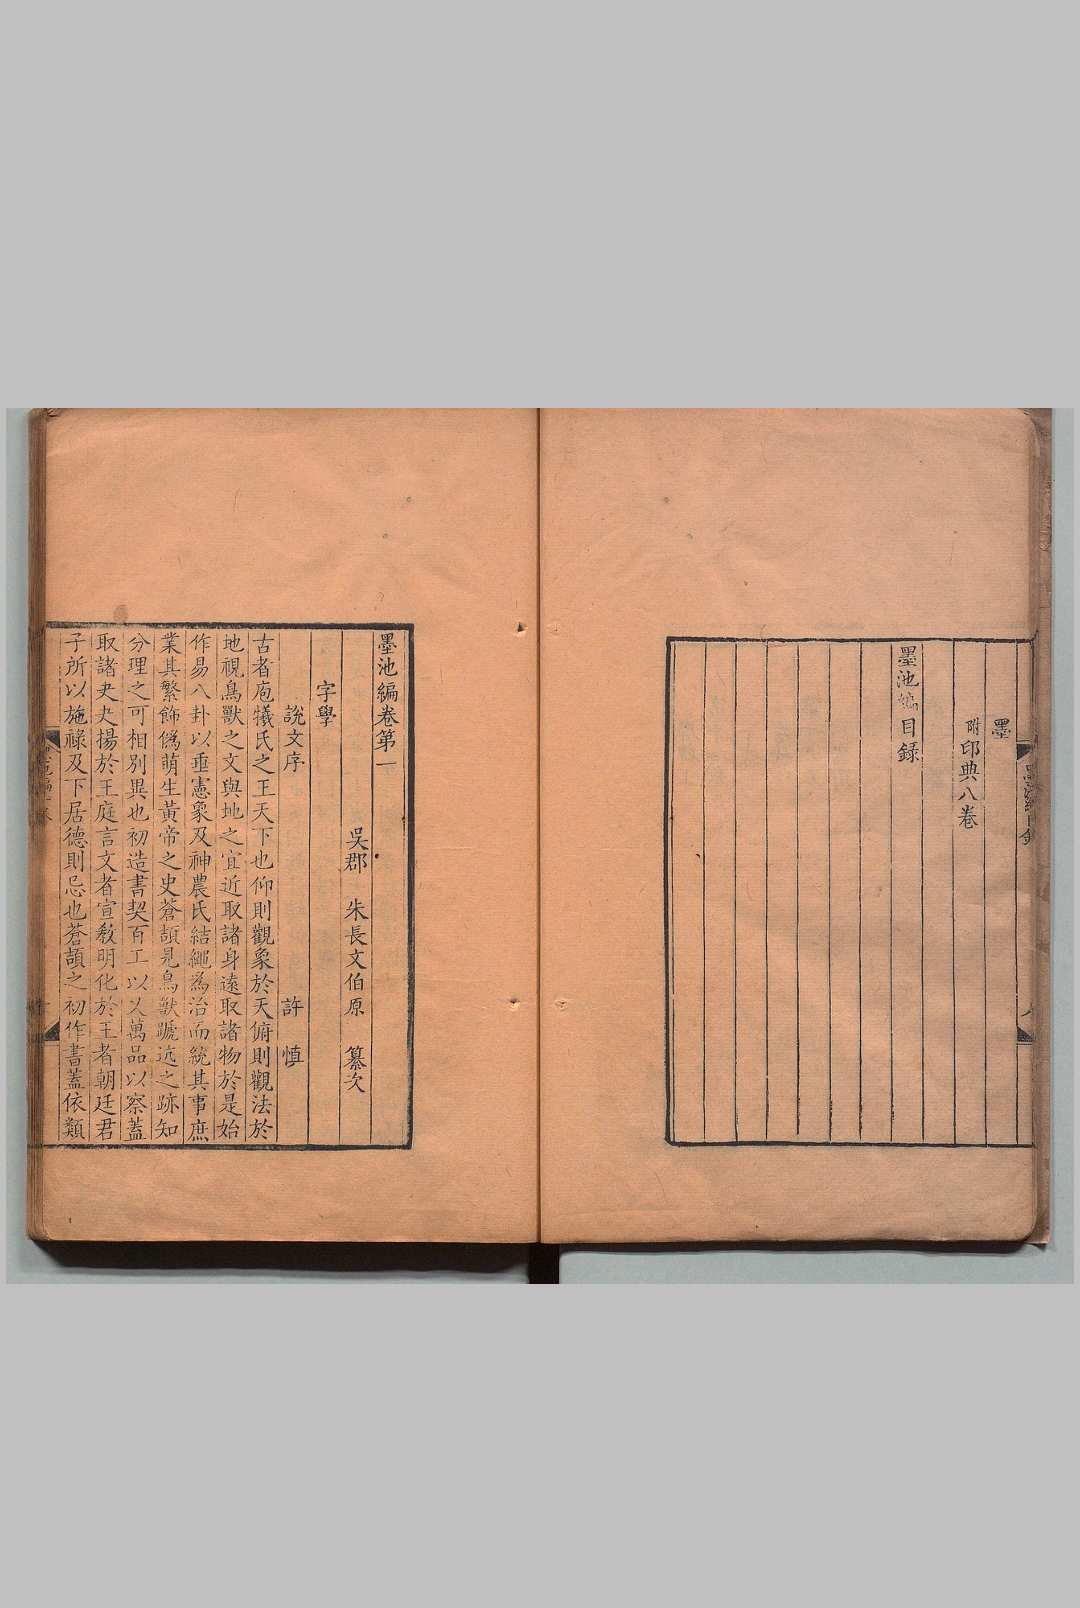 墨
附印典八卷
墨池編目録
墨池編卷第一
吳郡　朱長文伯原　纂次
字學
說文序　許　慎
古者庖犧氏之王天下也仰則觀象於天俯則觀法於
地視鳥獸之文與地之宜近取諸身遠取諸物於是始
作易八卦以垂憲象及神農氏結繩爲治而統其事庶
業其繁飾僞萌生黃帝之史蒼頡見鳥獸蹏迒之跡知
分理之可相別異也初造書契百工以乂萬品以察蓋
取諸夬夬揚於王庭言文者宣教明化於王者朝廷君
子所以施祿及下居德則忌也蒼頡之初作書蓋依類